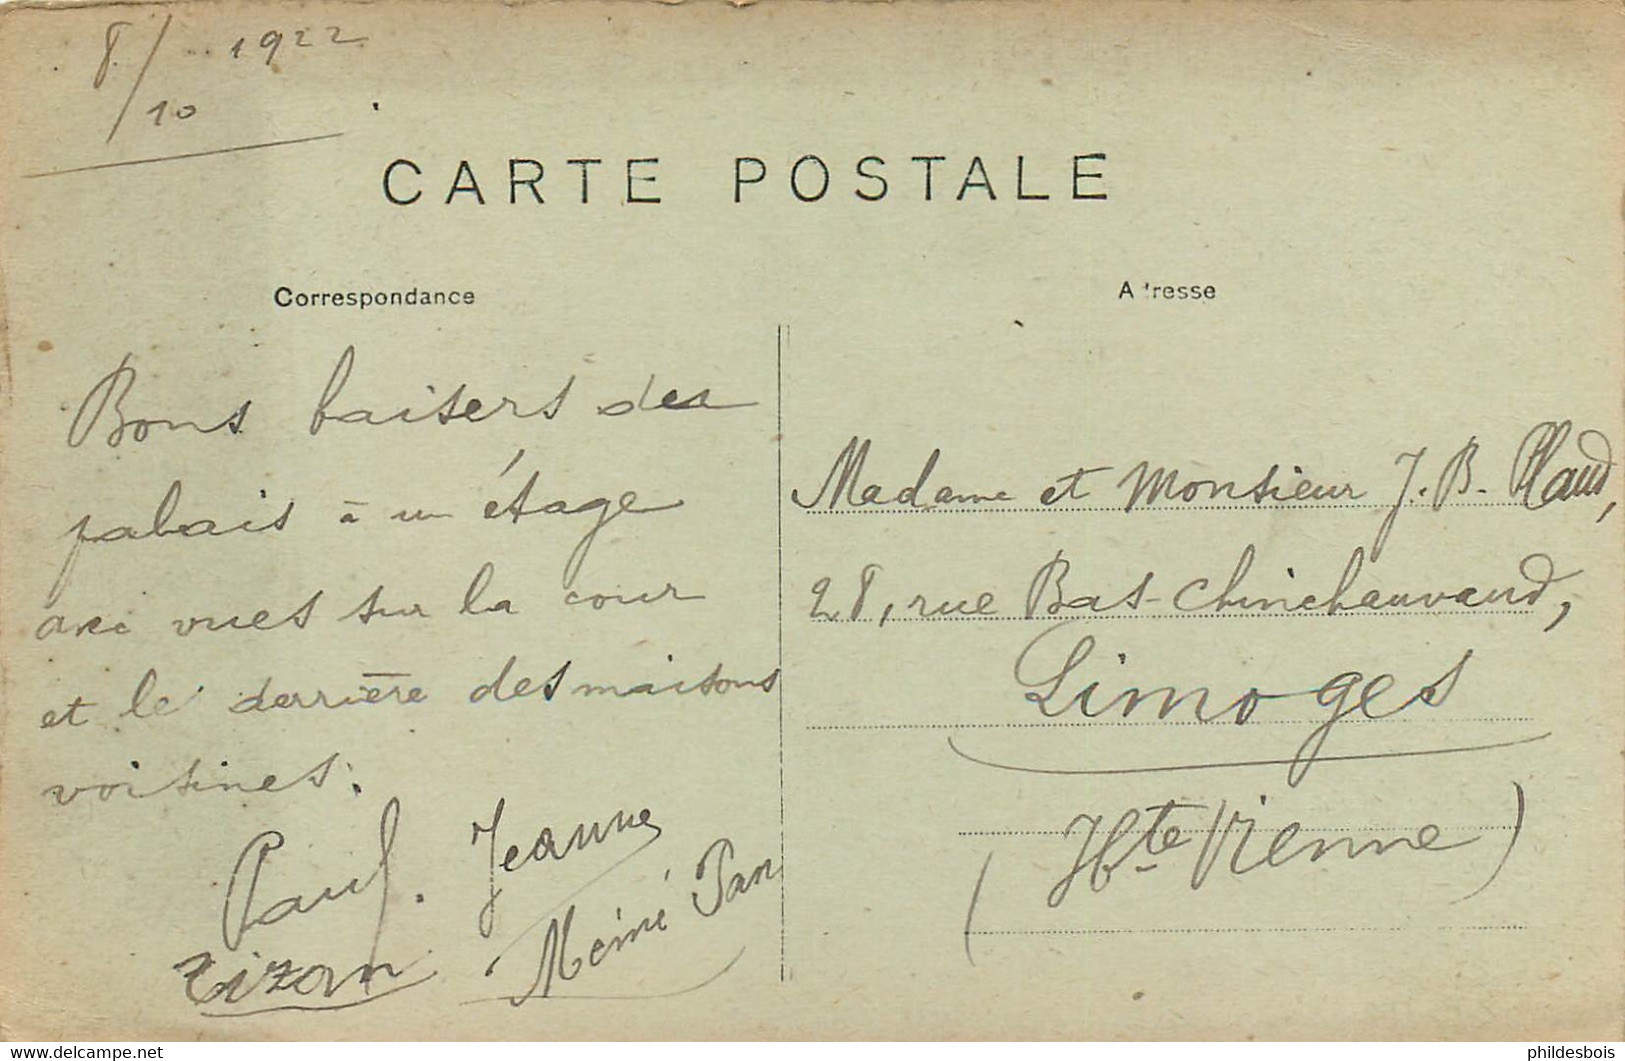 8/10 1922
CARTE POSTALE
Correspondance
Bons baisers des
palais à un étage
avec vues sur la cour
et le derrière des maisons
voisines.
Paul. Jeanne
Zizon Mémé Pan
Adresse
Madame et Monsieur J. B. Plaud,
28, rue Bas-Chinchauvaud,
Limoges
(Hte Vienne)
www.delcampe.net
phildesbois